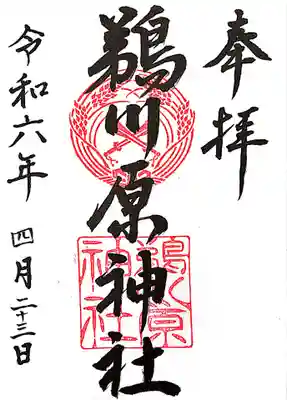 奉拝
鵜川原神社
令和六年
四月二十三日
鵜川原
神社